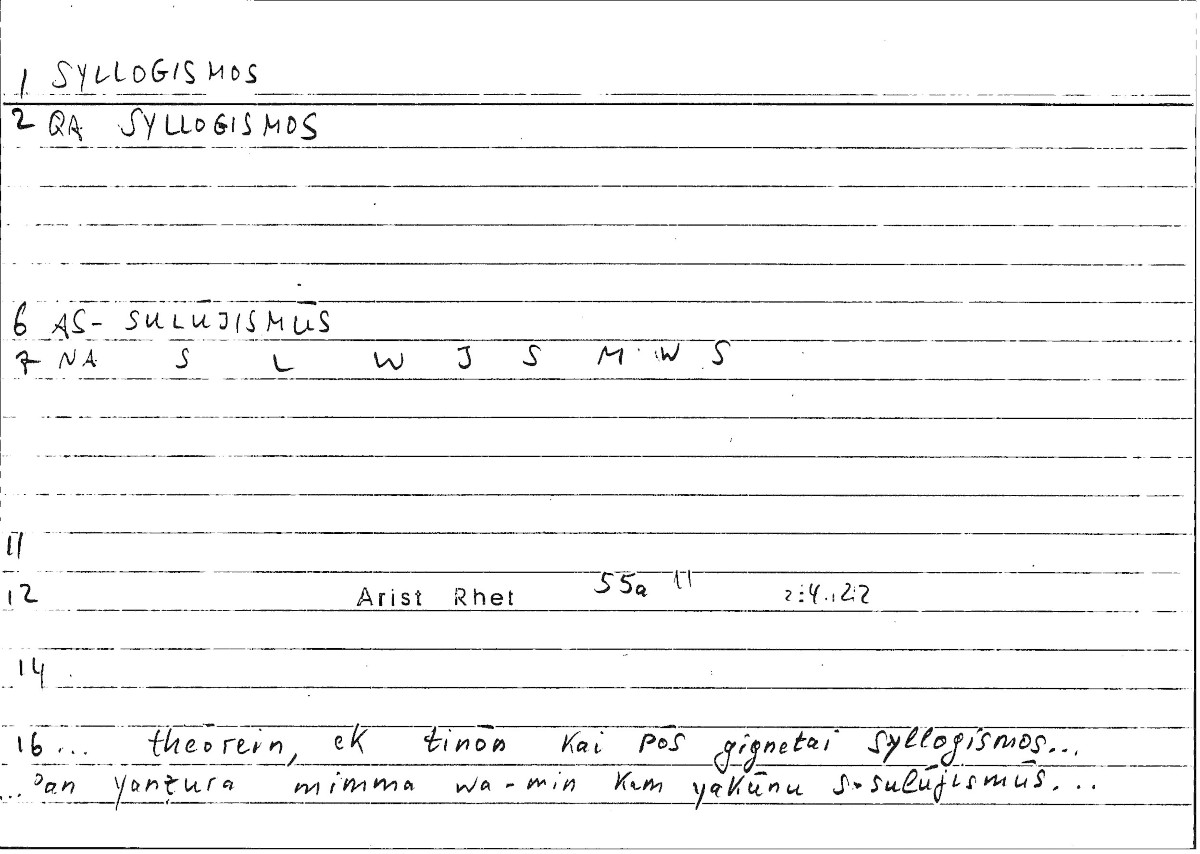 1 SYLLOGISMOS
2 QA SYLLOGISMOS
6 AS- SULŪJISMŪS
7 NA S L W J S M W S
11
12 Arist Rhet 55a 11
14
16 ... theōrein, ek tinōn kai pōs gignetai syllogismos...
... ʾan yanẓura mimma wa-min kam yakūnu s-sulūjismūs...